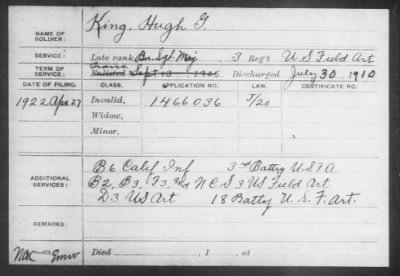 NAME OF SOLDIER: King, Hugh G.
SERVICE: Late rank Bn. Sgt Maj. 3 Reg't U S Field Art
TERM OF SERVICE: Enlisted Sept 13 1905 Discharged July 30, 1910
DATE OF FILING. CLASS. APPLICATION NO. LAW. CERTIFICATE NO.
1922 Apr 27 Invalid, 1466036
Widow,
Minor,
ADDITIONAL SERVICES: B6 Calif Inf 3rd Battry U.S.F.A.
B2, B3, F3, N C S 3 US Field Art
D3 US Art 18 Battry U. S. F. Art.
REMARKS:
Died , 1 , at